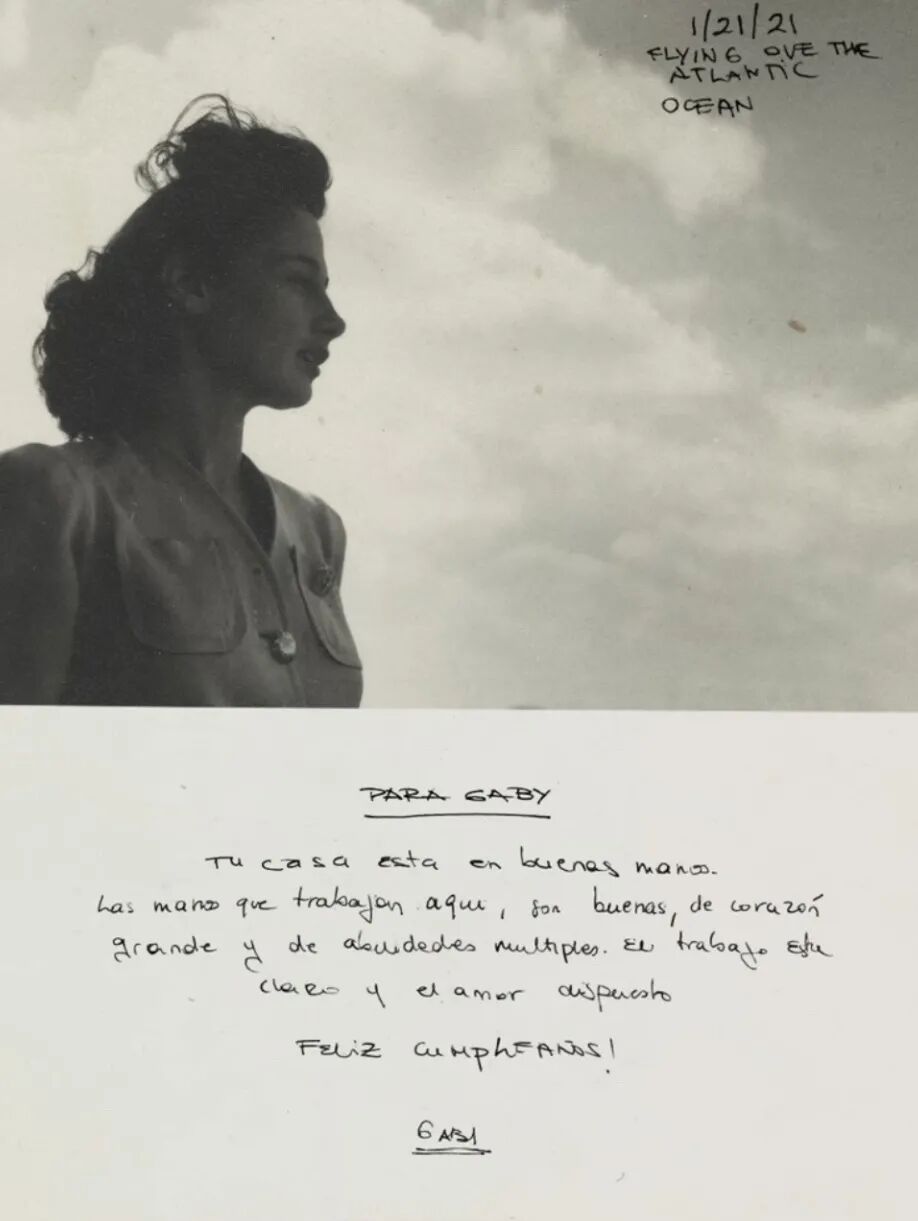 1/21/21
FLYING OVE THE
ATLANTIC
OCEAN
PARA GABY
Tu casa esta en buenas manos.
Las manos que trabajan aqui, son buenas, de corazón
grande y de multiples. El trabajo esta
claro y el amor dispuesto
FELIZ CUMPLEAÑOS!
GABI